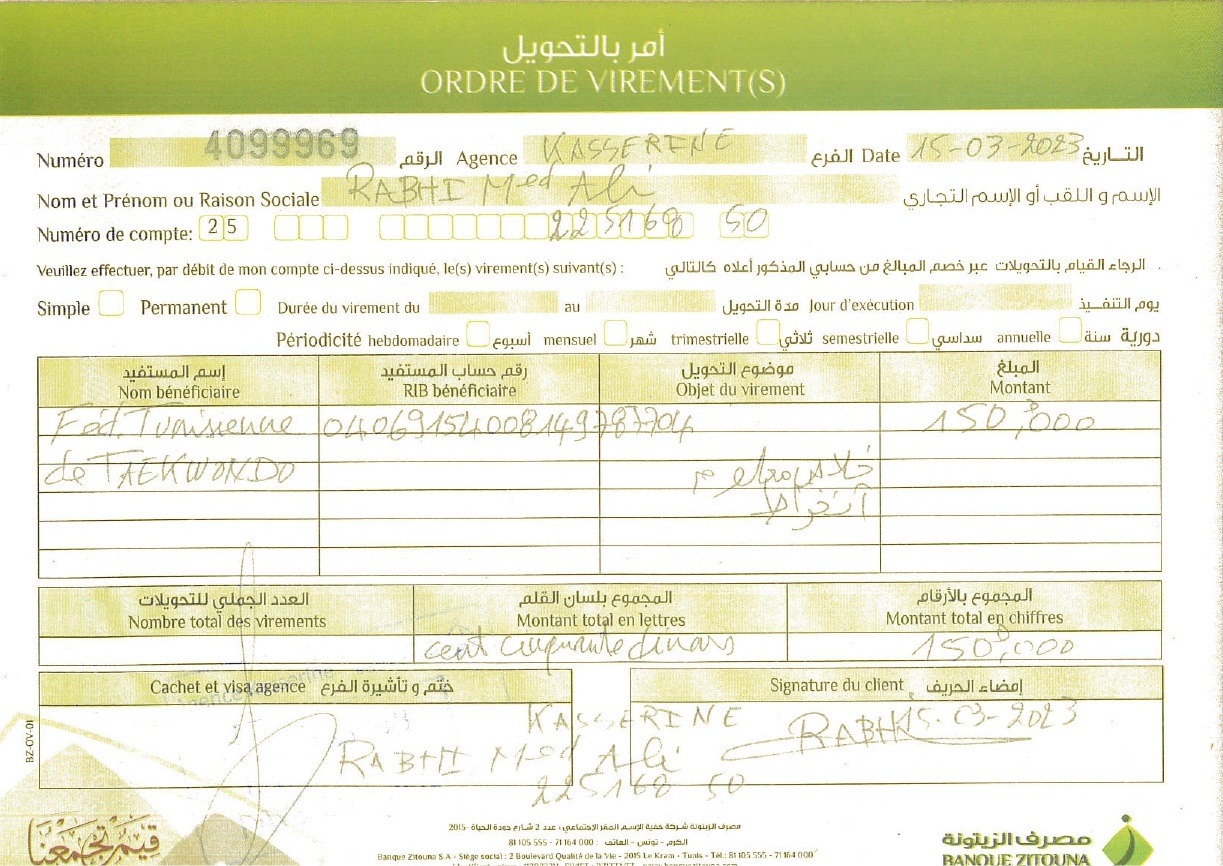 أمر بالتحويل
ORDRE DE VIREMENT(S)
Numéro 4099969 الرقم Agence KASSERINE الفرع Date 15-03-2023 التاريخ
Nom et Prénom ou Raison Sociale RABHI Med Ali الإسم و اللقب أو الإسم التجاري
Numéro de compte: 25 225168 50
Veuillez effectuer, par débit de mon compte ci-dessus indiqué, le(s) virement(s) suivant(s) : الرجاء القيام بالتحويلات عبر خصم المبالغ من حسابي المذكور أعلاه كالتالي .
Simple Permanent Durée du virement du au مدة التحويل Jour d'exécution يوم التنفيـذ
Périodicité hebdomadaire أسبوع mensuel شهر trimestrielle ثلاثي semestrielle سداسي annuelle سنة دورية
إسم المستفيد رقم حساب المستفيد موضوع التحويل المبلغ
Nom bénéficiaire RIB bénéficiaire Objet du virement Montant
Féd. Tunisienne 04069154008149787704 150,000
de TAEKWONDO خلاص
العدد الجملي للتحويلات المجموع بلسان القلم المجموع بالأرقام
Nombre total des virements Montant total en lettres Montant total en chiffres
cent cinquante dinars 150,000
Cachet et visa agence ختم و تأشيرة الفرع Signature du client إمضاء الحريف
KASSERINE RABHI 15-03-2023
RABHI Med Ali
225168 50
BZ-OV-01
قيم تجمعنا
مصرف الزيتونة شركة خفية الإسم المقر الإجتماعي : عدد 2 شارع جودة الحياة -2015
الكرم - تونس - الهاتف : 000 164 71 - 555 105 81
Banque Zitouna S.A - Siège social : 2 Boulevard Qualité de la Vie - 2015 Le Kram - Tunis - Tél.: 81 105 555 - 71 164 000
مصرف الزيتونة
BANQUE ZITOUNA